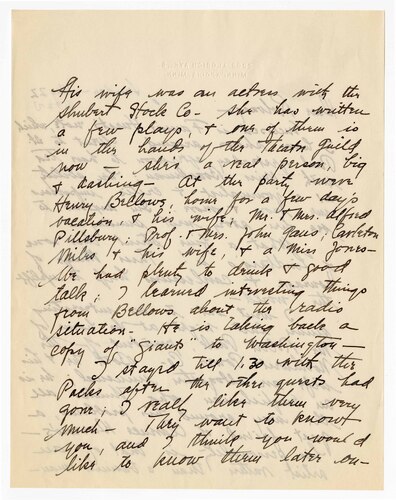 His wife was an actress with the
Shubert Stock Co- She has written
a few plays, & one of them is
in the hands of the Theatre Guild
now - She's a real person, big
& dashing - At the party were
Henry Bellows, home for a few days
vacation, & his wife; Mr. & Mrs. Alfred
Pillsbury; Prof. & Mrs. John Gaus, Carleton
Miles & his wife, & a Miss Jones-
We had plenty to drink & good
talk; I learned interesting things
from Bellows about the radio
situation - He is taking back a
copy of "Giants" to Washington -
I stayed till 1.30 with the
Pecks after the other guests had
gone; I really like them very
much - They want to know
you, and I think you would
like to know them later on -